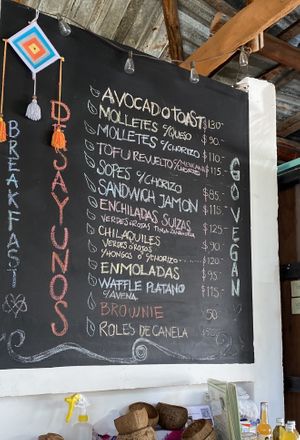 BREAKFAST
DESAYUNOS
AVOCADO TOAST $130-
MOLLETES c/QUESO $90-
MOLLETES c/CHORIZO $110-
TOFU REVUELTO c/ $115-
SOPES c/CHORIZO $85-
SANDWICH JAMON $115-
ENCHILADAS SUIZAS $125-
VERDES o ROJAS
CHILAQUILES $90-
VERDES o ROJOS
c/HONGOS o c/CHORIZO $120-
ENMOLADAS $95-
WAFFLE PLATANO $115-
c/AVENA
BROWNIE 50-
ROLES DE CANELA
GO VEGAN